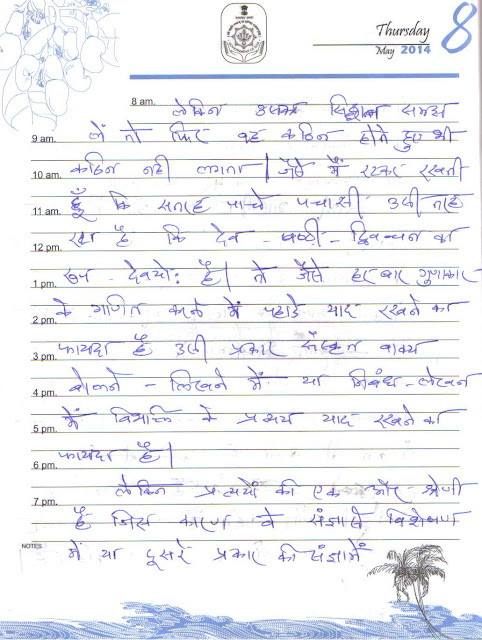 Thursday 8
May 2014
8 am. लेकिन उसका सिद्धान्त समझ
9 am. लें तो फिर वह कठिन होते हुए भी
कठिन नही लगता। जैसे मैं रटकर रखती
10 am.
हूँ कि सतरह पाचे पचासी उसी तरह
11 am.
रटा है कि देव - षष्ठी - द्विवचन का
12 pm.
रूप - देवयोः है। तो जैसे हर बार गुणाकार
1 pm.
के गणित करने में पहाडे याद रखने का
2 pm.
फायदा है उसी प्रकार संस्कृत वाक्य
3 pm.
बोलने - लिखने में या निबंध - लेखन
4 pm.
में विभक्ति के प्रत्यय याद रखने का
5 pm.
फायदा है।
6 pm.
लेकिन प्रत्ययों की एक और श्रेणी
7 pm.
है जिस कारण वे संज्ञासे विशेषण
NOTES में या दूसरे प्रकार की संज्ञामें